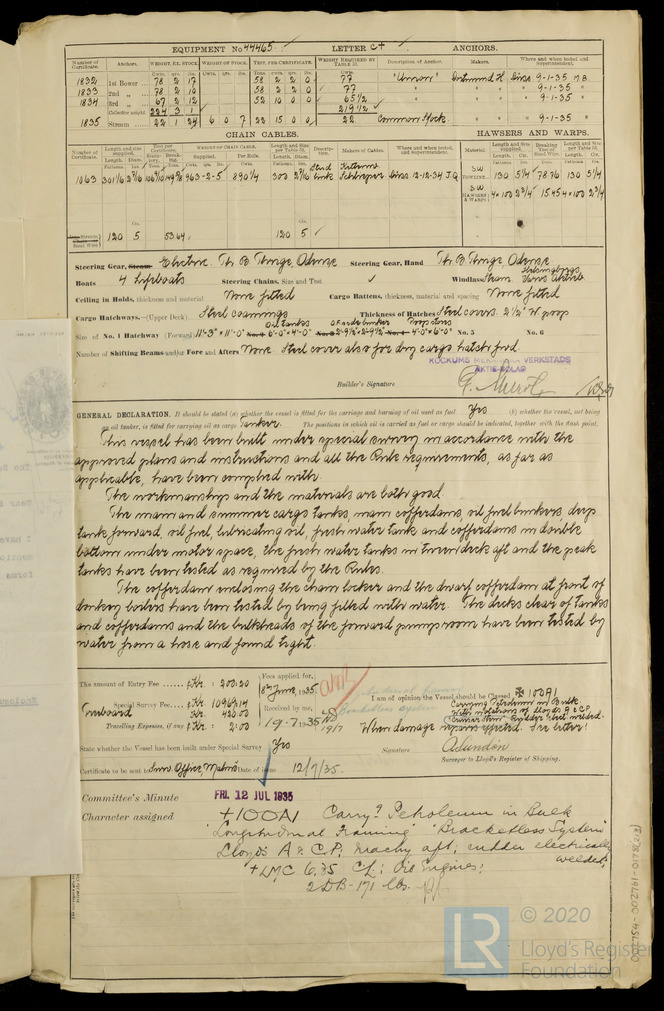 EQUIPMENT No 44465. LETTER C+ ANCHORS.
Number of Certificate. Anchors. WEIGHT, EX. STOCK. WEIGHT OF STOCK. TEST, PER CERTIFICATE. WEIGHT REQUIRED BY TABLE 31. Description of Anchor. Makers. Where and when tested and Superintendent.
1832 1st Bower 78 2 17 58 2 2 0 77 "Union" Dortmund H. 9-1-35
1833 2nd " 78 2 10 58 2 2 0 77 " " 9-1-35 "
1834 3rd " 67 2 12 52 10 0 0 65 1/2 " " 9-1-35 "
Collective weight 224 3 1 219 1/2
1835 Stream 22 1 24 6 0 7 22 15 0 0 22 Common Stock. " 9-1-35 "
CHAIN CABLES. HAWSERS AND WARPS.
Number of Certificate. Length and size supplied. Test per Certificate. WEIGHT OF CHAIN CABLE. Length and size per Table 31. Description. Makers of Cables. Where and when tested, and Superintendent. Material. Length and Size supplied. Breaking Test of Steel Wire. Length and Size per Table 31.
1063 301 1/6 2 3/16 963-2-5 890 1/4 300 2 3/16 Stud link Schlieper 12-12-34 J.Q. S.W. 130 5 1/4 78.76 130 5 1/4
S.W. HAWSERS & WARPS 4x100 2 3/4 15.45 4x100 2 3/4
120 5 53.64 120 5
Steering Gear, Steam Electric. Th. B. Thrige, Odense Steering Gear, Hand Th. B. Thrige, Odense
Boats 4 Lifeboats Steering Chains, Size and Test ✓ Windlass Steam.
Ceiling in Holds, thickness and material None fitted Cargo Battens, thickness, material and spacing None fitted
Cargo Hatchways.—(Upper Deck) Steel coamings Thickness of Hatches Steel covers. 2 1/2" W poop
Size of No. 1 Hatchway (Forward) 11'-3" x 11'-0" Oil tanks 6'-0" x 4'-0" 4'-0" x 6'-0" No. 5 No. 6
Number of Shifting Beams and/or Fore and Afters None Steel cover also for dry cargo hatch fwd.
KOCKUMS MEKANISKA VERKSTADS
AKTIE-BOLAG
Builder's Signature
GENERAL DECLARATION. It should be stated (a) whether the vessel is fitted for the carriage and burning of oil used as fuel Yes (b) whether the vessel, not being
an oil tanker, is fitted for carrying oil as cargo Tanker. The positions in which oil is carried as fuel or cargo should be indicated, together with the flash point.
This vessel has been built under special survey in accordance with the
approved plans and instructions and all the Rule requirements, as far as
applicable, have been complied with.
The workmanship and the materials are both good.
The main and summer cargo tanks, main cofferdams, oil fuel bunkers, deep
tank forward, oil fuel, lubricating oil, fresh water tank and cofferdams in double
bottom under motor space, the fresh water tanks in tween deck aft and the peak
tanks have been tested as required by the Rules.
The cofferdam enclosing the chain locker and the dwarf cofferdam at front of
donkey boilers have been tested by being filled with water. The decks clear of tanks
and cofferdams and the bulkheads of the forward pumproom have been tested by
water from a hose and found tight.
The amount of Entry Fee ...... Kr. : 200.20
Special Survey Fee Kr. 10964.14
Freeboard Kr. 420.00
Travelling Expenses, if any Kr. : 2.00
Fees applied for,
8th June, 1935
Received by me,
19-7-1935
I am of opinion the Vessel should be Classed ✠ 100A1
Carrying Petroleum in Bulk
With notations of Lloyds A & C.P.
When damage repairs effected. See letter!
State whether the Vessel has been built under Special Survey Yes Signature
Surveyor to Lloyd's Register of Shipping.
Certificate to be sent to Surv. Office, Malmö Date of issue 12/7/35.
Committee's Minute FRI. 12 JUL 1935
Character assigned +100A1 Carryg Petroleum in Bulk
"Longitudinal Framing" "Bracketless System"
Lloyd's A & C.P. Machy aft, rudder electrically
welded;
+LMC 6.35 CL; Oil Engines;
2 DB-171 lbs.
© 2020
LR
Lloyd's Register
Foundation